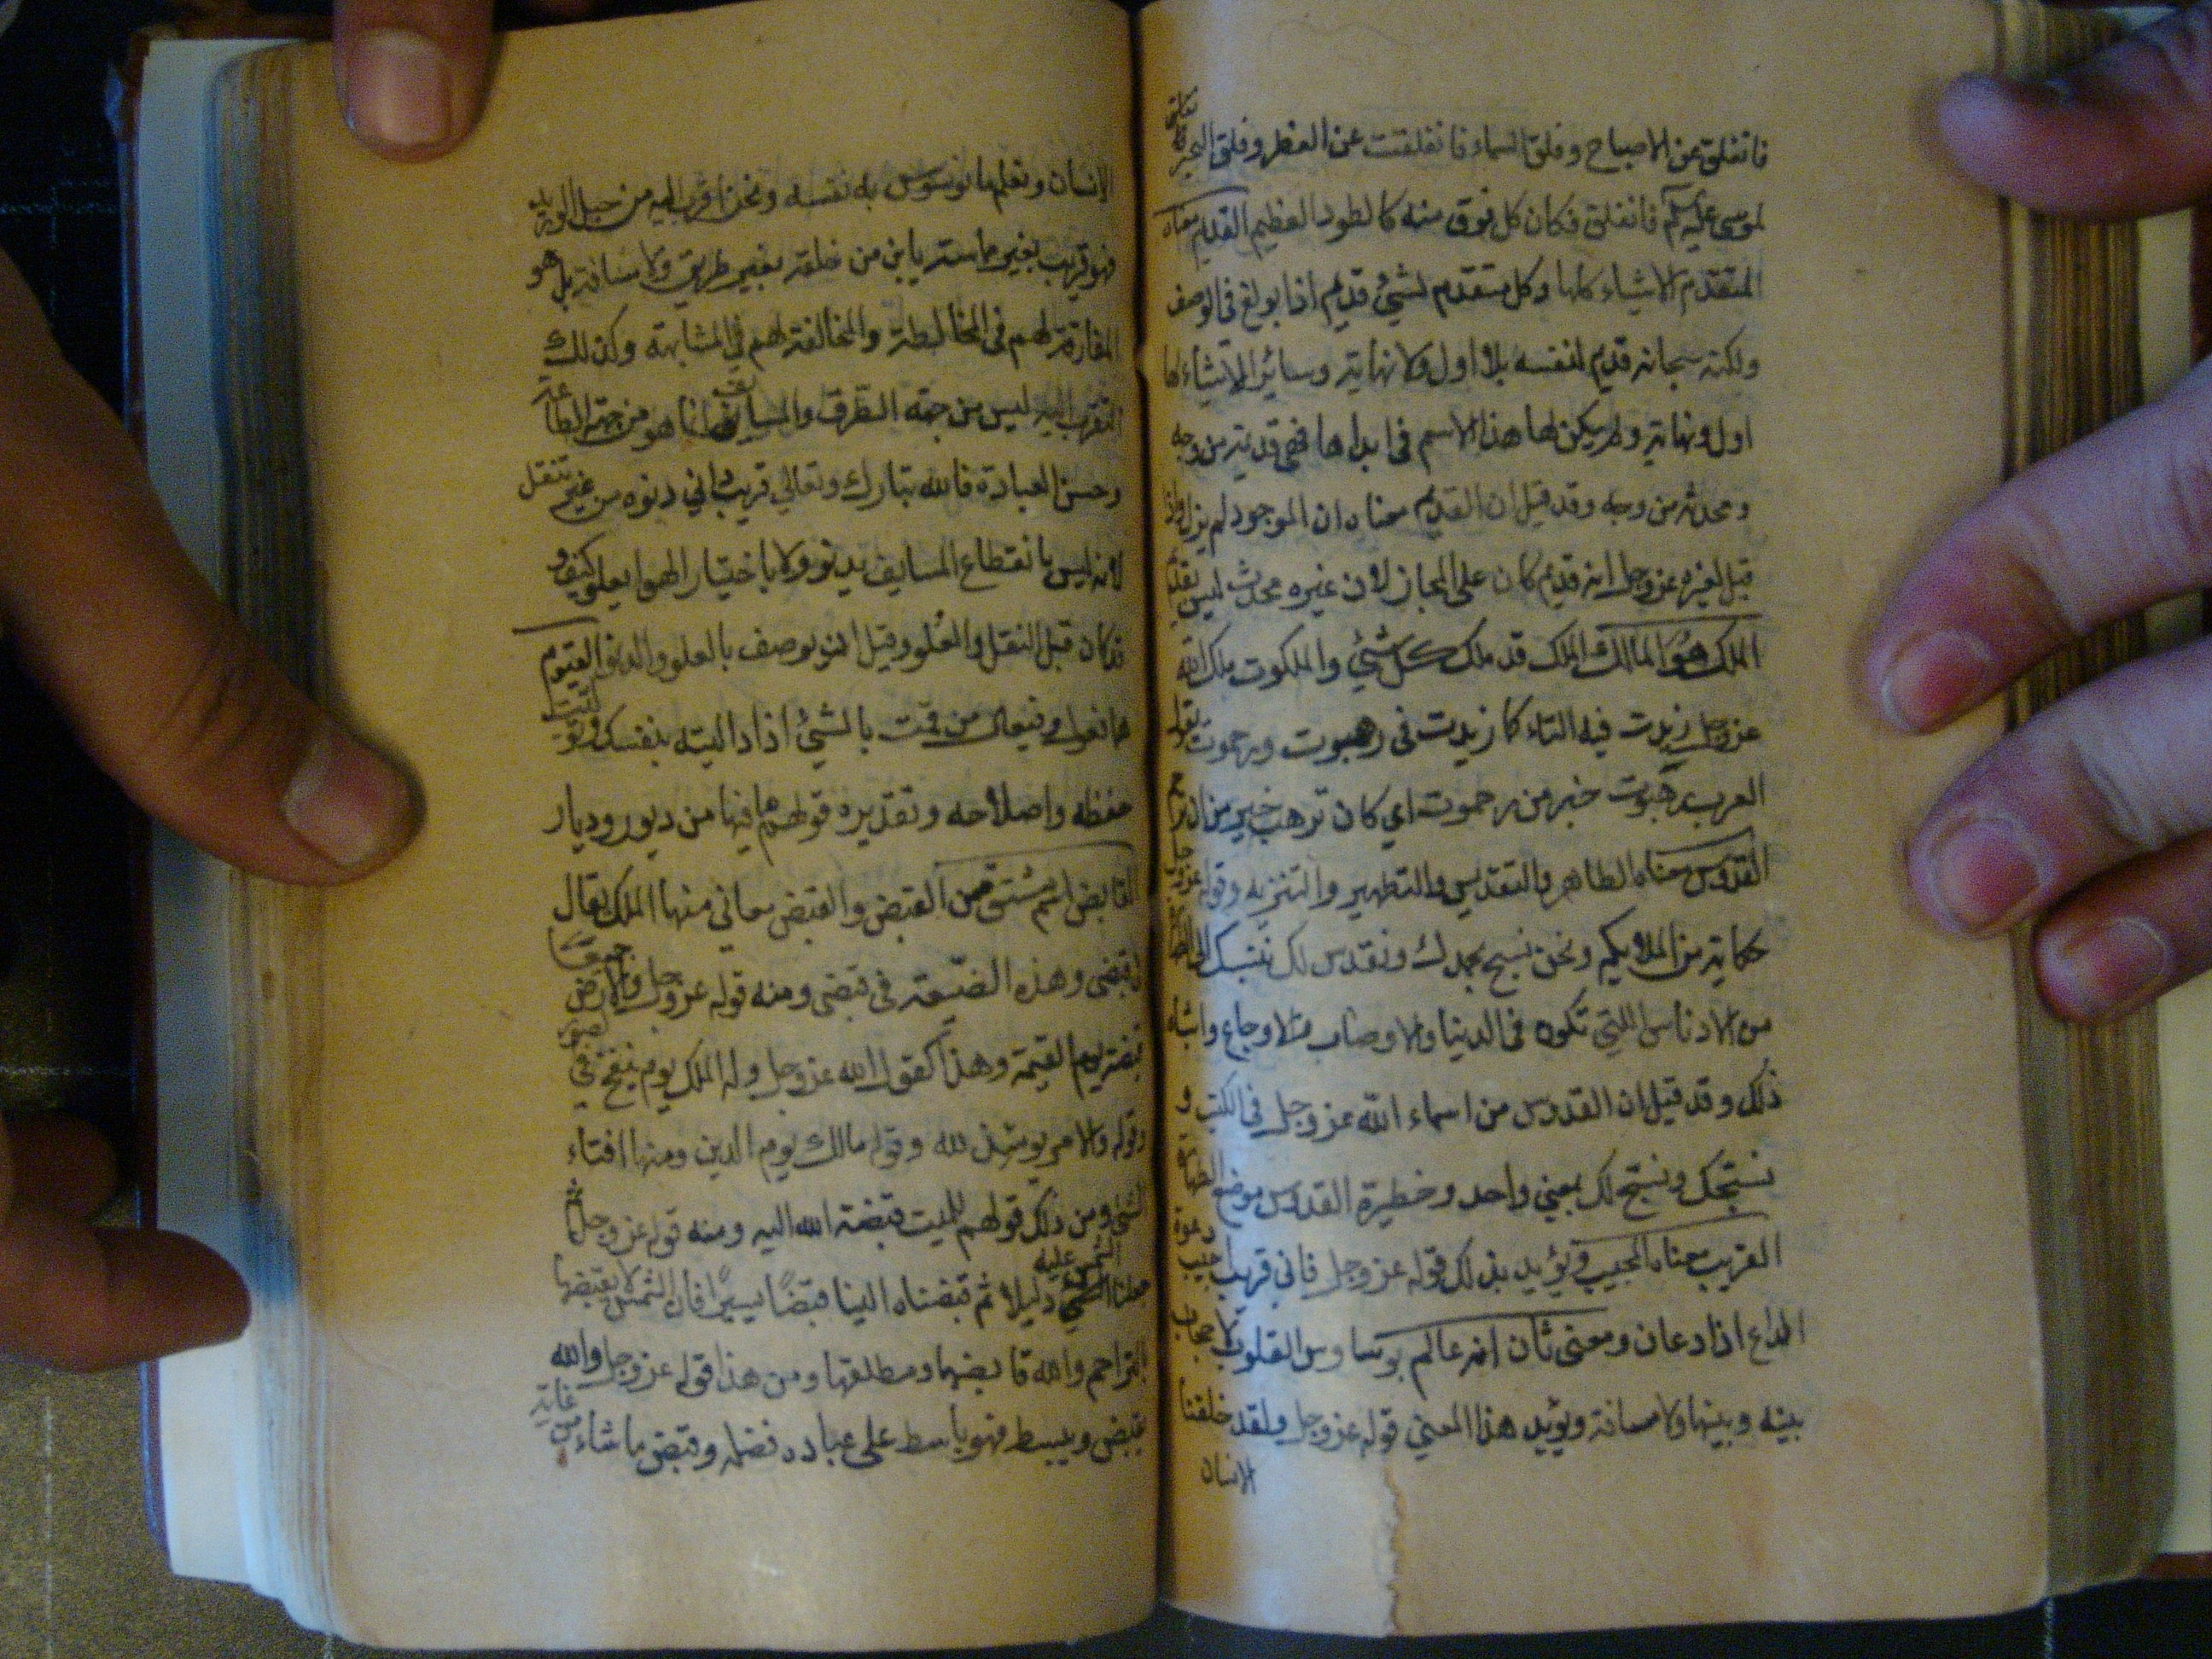 فانفلق عن الاصباح وفلق السماء فانفلقت عن القطر وفلق البحر
لموسى عليه السلم فانفلق فكان كل فرق منه كالطود العظيم القديم معناه
المتقدم للاشياء كلها وكل متقدم لشيئ قديم اذا بولغ فى الوصف
ولكنه سبحانه قديم لنفسه بلا اول ولا نهاية وسائر الاشياء لها
اول ونهاية ولم يكن لها هذا الاسم فى ابداها فهى قديمة من وجه
ومحدثة من وجه وقد قيل ان القديم معناه ان الموجود لم يزل واذا
قيل لغيره عز وجل انه قديم كان على المجاز لان غيره محدث ليس بقديم
الملك هو المالك الملك قد ملك كل شيئ والملكوت ملك الله
عز وجل زيدت فيه التاء كما زيدت فى رهبوت ورحموت تقول
العرب رهبوت خير من رحموت اي كان ترهب خير من ان ترحم
القدوس معناه الطاهر والتقديس والتطهير والتنزيه وقوله عز وجل
حكاية من الملائكم ونحن نسبح بحمدك ونقدس لك ننسبك الى الطهارة
من الادناس اللتي تكون فى الدنيا والاوصاب والاوجاع واشباه
ذلك وقد قيل ان القدوس من اسماء الله عز وجل فى الكتب و
نسبحك ونسبح لك بمعنى واحد وحظيرة القدوس موضع الطهارة
القريب معناه المجيب ويؤيد بذلك قوله عز وجل فاني قريب اجيب دعوة
الداع اذا دعان ومعنى ثان انه عالم بوساوس القلوب لا حجاب
بينه وبينها ولا مسافة ويؤيد هذا المعني قوله عز وجل ولقد خلقنا
الانسان
الانسان ونعلم ما توسوس به نفسه ونحن اقرب اليه من حبل الوريد
فهو قريب بغير مماسة باين من خلقه بغير طريق ولا مسافة بل هو
المفارقة لهم فى المخالطة والمخالفة لهم في المشابهة وكذلك
التقرب اليه ليس من جهة الطرق والمسايف انما هو من جهة الطاعة
وحسن العبادة فالله تبارك وتعالي قريب داني دنوه من غير تنقل
لانه ليس باقتطاع المسايف يدنو ولا باختيار الهوا يعلو كيف و
قد كان قبل التنقل والعلو وقبل ان يوصف بالعلو والدنو القيوم
هما فعول وفيعال من قمت بالشيئ اذا وليته بنفسك وتوليت
حفظه واصلاحه وتقديره قولهم ما فيها من ديور وديار
القابض اسم مشتق من القبض والقبض معاني منها الملك يقال
في قبضي وهذه الضيعة فى قبضى ومنه قوله عز وجل والارض جميعا
قبضته يوم القيمة وهذا كقول الله عز وجل وله الملك يوم ينفخ في الصور
وقوله والامر يومئذ لله وقوله مالك يوم الدين ومنها افناء
الشئ ومن ذلك قولهم للميت قبضه الله اليه ومنه قوله عز وجل ثم
جعلنا الشمس عليه دليلا ثم قبضناه الينا قبضا يسيرا فان الشمس لا يقبضها
البراجم والله قابضها ومطلقها ومن هذا قوله عز وجل والله
يقبض ويبسط فهو باسط على عباده فضله وقبض ما شاء من